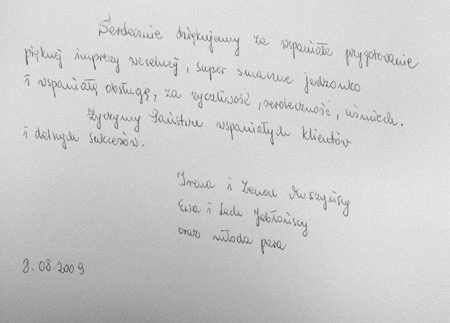 Serdecznie dziękujemy za wspaniałe przygotowanie
pięknej imprezy weselnej, super smaczne jedzonko
i wspaniałą obsługę, za życzliwość, serdeczność, uśmiech.
Życzymy Państwu wspaniałych klientów
i dalszych sukcesów.
Irena i Zenon Muszyńscy
Ewa i Lech Jabłońscy
oraz młoda para
8.08.2009